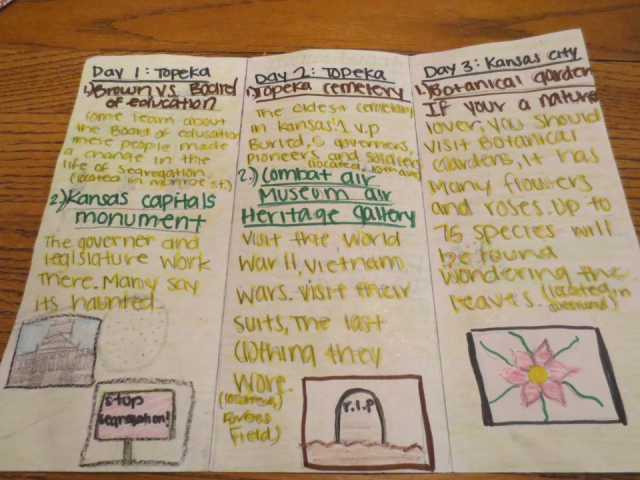 Day 1: Topeka
1.) Brown vs. Board
of education
Come learn about
the Board of education
these people made
a change in the
life of segregation.
(located in monroe st.)
2.) Kansas capitals
monument
The governer and
legislature work
There. Many say
its haunted
Stop
segregation!
Day 2: Topeka
1.) Topeka cemetery
The oldest cemetery
in Kansas! 1 V.P
Buried, 5 governers,
pioneers and soldiers
(located: 10th ave)
2.) Combat air
Museum air
Heritage gallory
Visit the, World
War II, Vietnam
wars. visit their
suits, The last
clothing they
wore.
(located,
Forbes
Field)
r.I.P
Day 3: Kansas city
1.) Botanical garden
If your a nature
lover, you should
visit Botanical
Gardens, it has
Many flowers
and roses. Up to
75 species will
be found
wondering the
leaves. (located in